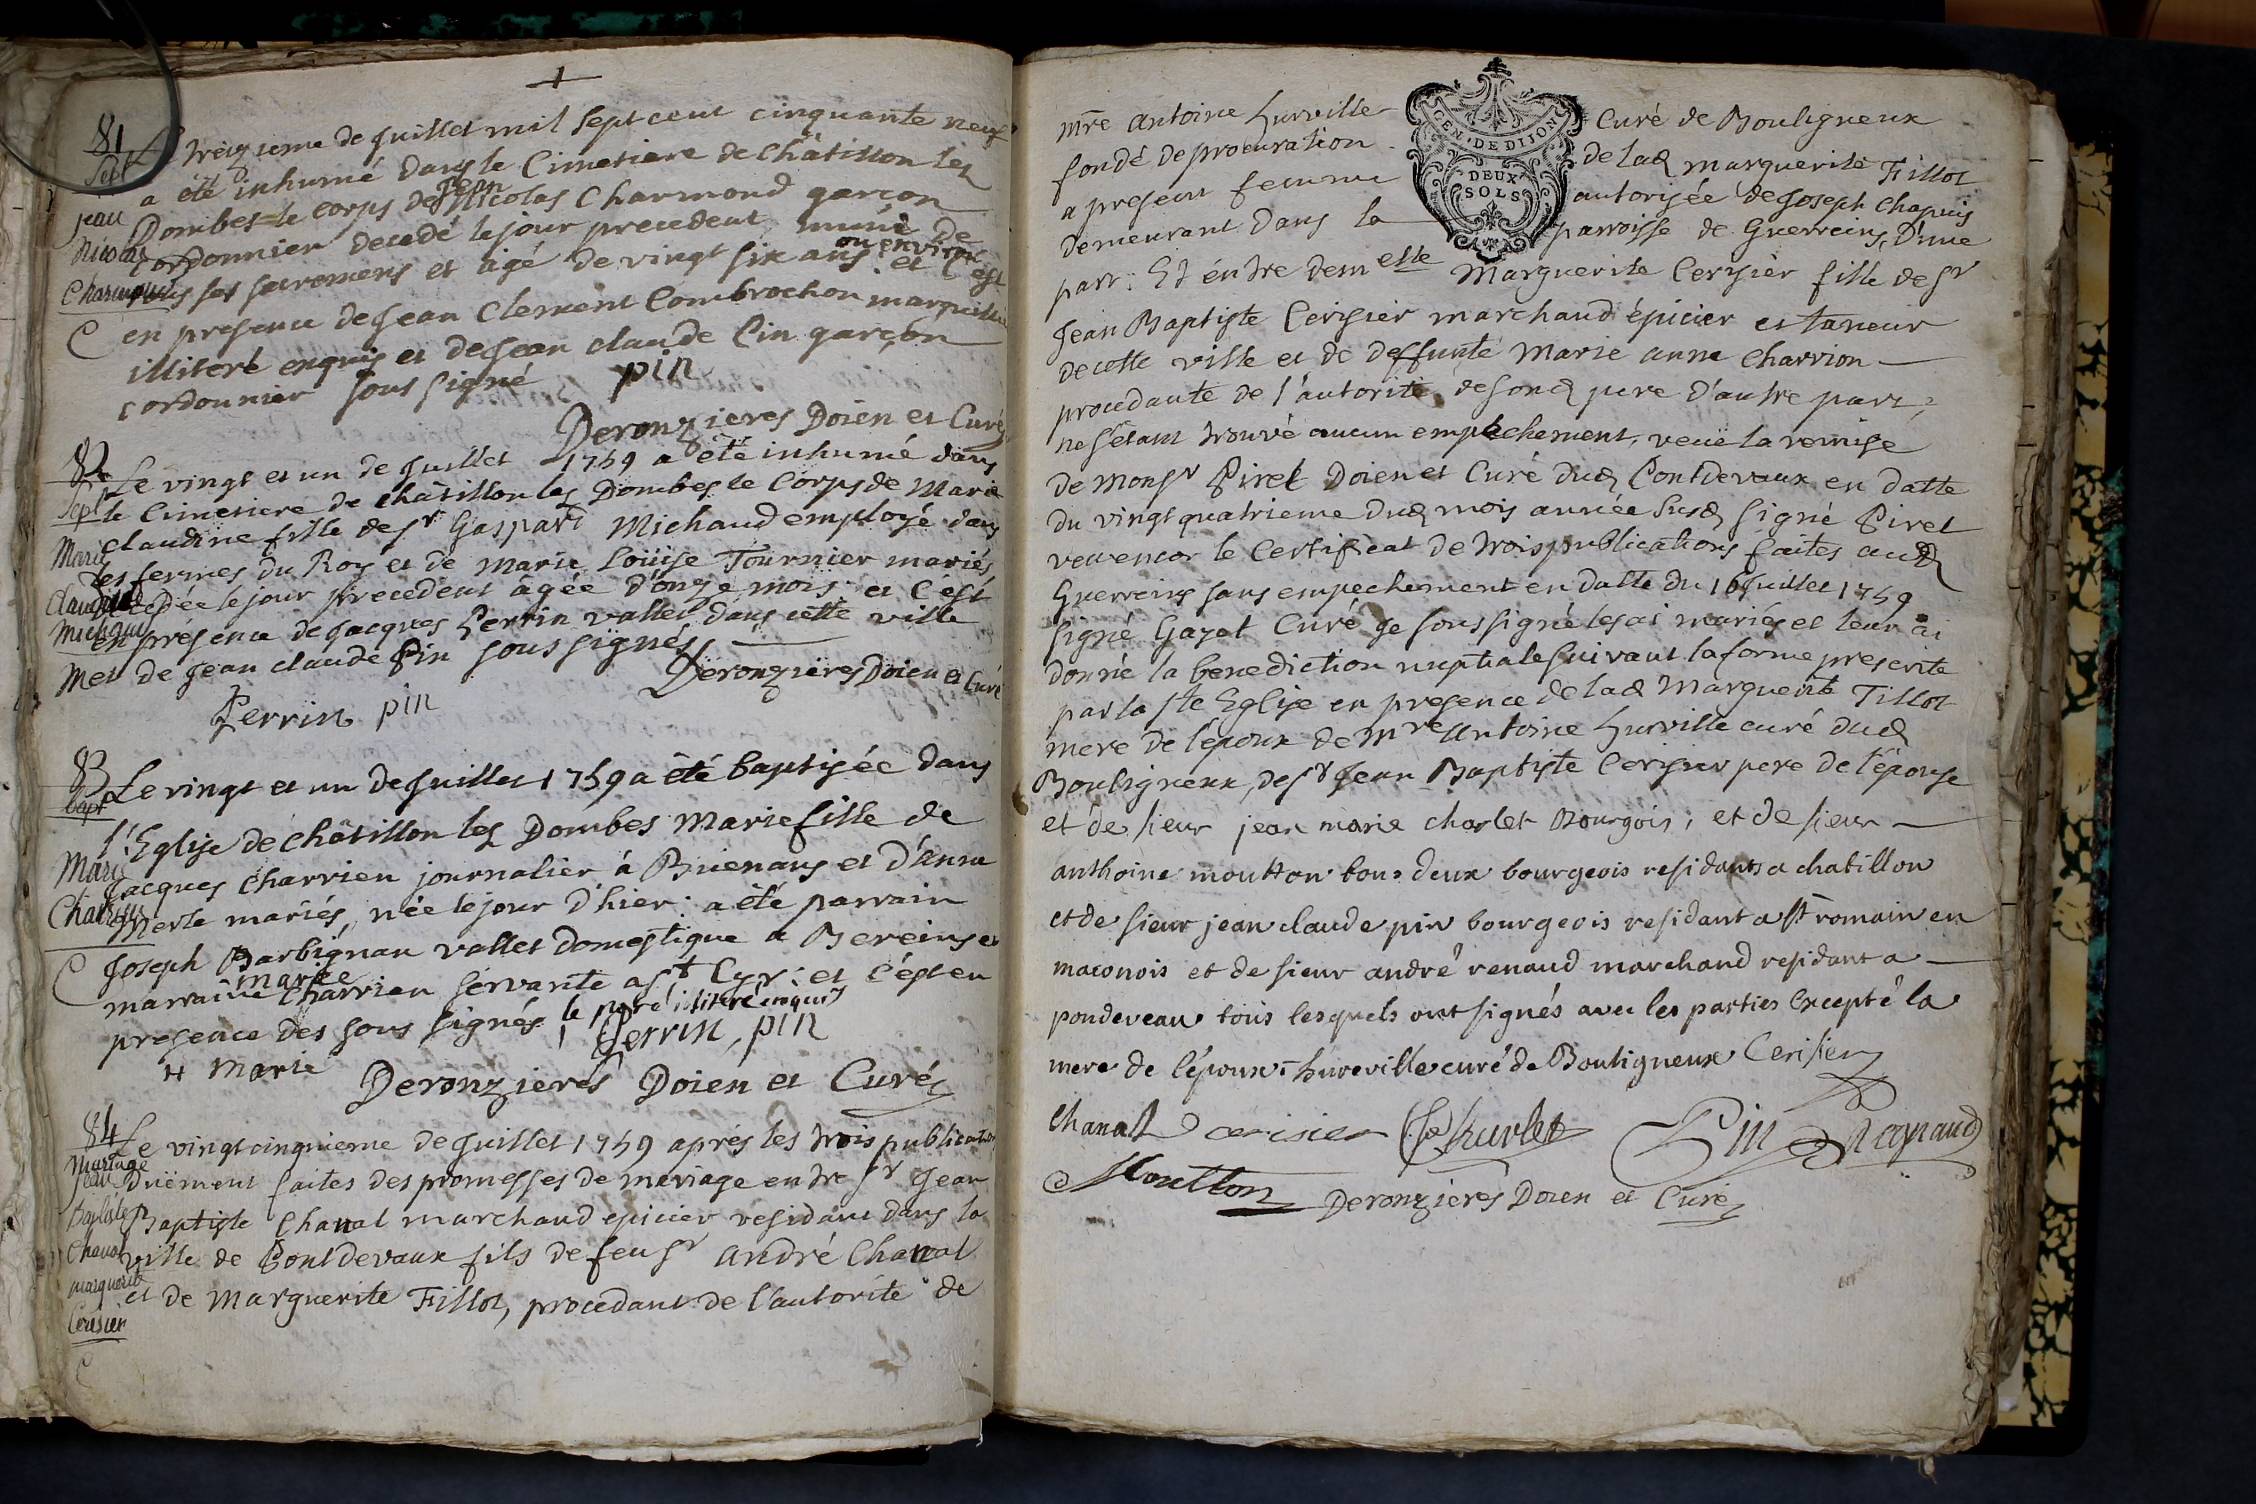 81
Sept
jean
Nicolas
Charmond
Le treizieme de Juillet mil sept cent cinquante neuf
a été inhumé dans le Cimetiere de châtillon lez
Dombes le corps de Jean Nicolas Charmond garçon
cordonnier decedé le jour precedent, muni de
tous ses sacremens et âgé de vingt six ans ou environ et c'est
en presence de Jean Clement Combrochon marguillier
illiteré enquis et de Jean claude Pin garçon
cordonnier sous signé pin
Deronzieres Doien et Curé
82
Sept
Marie
Claudine
Michaud
Le vingt et un de Juillet 1759 a été inhumé dans
le Cimetiere de châtillon lez Dombes le Corps de Marie
claudine fille de Sr Gaspard Michaud employé dans
les fermes du Roy et de Marie Loüise Tournier mariés
decedée le jour precedent âgée d'onze mois et c'est
en présence de Jacques Perrin vallet dans cette ville
et de Jean claude Pin sous signés
Deronzieres Doien et Curé
Perrin pin
83
bapt
Marie
Charrien
Le vingt et un de Juillet 1759 a été baptisée dans
l'Eglise de châtillon lez Dombes Marie fille de
Jacques Charrien journalier à Buenans et d'anne
Merle mariés, née le jour d'hier: a été parrain
Joseph Barbignan vallet domestique a Bereins et
marraine marie Charrien servante a St Cyr: et c'est en
presence des sous signés le pere illiteré enquis
Perrin, pin
H Marie
Deronzieres Doien et Curé
84
Mariage
Jean
Baptiste
Chanal
marguerite
Cerisier
Le vingt cinquieme de Juillet 1759 aprés les trois publications
düement faites des promesses de mariage entre Sr Jean
Baptiste Chanal marchand epicier residant dans la
ville de Pontdevaux fils de feu Sr André Chanal
et de Marguerite Fillot, procedant de l'autorité de
mre Antoine Hurville Curé de Bouligneux
fondé de procuration de lad marguerite Fillot
a present femme autorisée de Joseph Chapuis
demeurant dans la parroisse de Guerreins, D'une
GEN. DE DIJON
DEUX
SOLS
part: Et entre demelle Marguerite Cerisier fille de Sr
Jean Baptiste Cerisier marchand épicier et taneur
de cette ville et de deffunte Marie anne Charrion
procedante de l'autorité de sond pere d'autre part;
ne s'étant trouvé aucun empechement, veüe la remise
de Monsr Piret Doien et Curé dud Pontdevaux en datte
du vingt quatrieme dud mois année susd signé Piret
veu encor le Certificat de trois publications faites aud
Guerreins sans empechement en datte du 16 Juillet 1759
signé Gayot Curé Je soussigné les ai mariés et leur ai
donné la benediction nuptiale suivant la forme prescrite
par la Ste Eglise en presence de lad Marguerite Fillot
mere de l'époux de mre Antoine Hurville curé dud
Bouligneux, de Sr Jean Baptiste Cerisier pere de l'épouse
et de sieur jean marie charlet Bourgois, et de sieur
anthoine moutton tous deux bourgeois residants a chatillon
et de sieur jean claude pin bourgeois residant a st romain en
maconois et de sieur andré renaud marchand residant a
pondeveau tous lesquels ont signés avec les parties Excepté la
mere de l'époux. hureville curé de Bouligneux Cerisier
Chanal cerisier Charlet Pin Regnaud
Moutton Deronzieres Doien et Curé